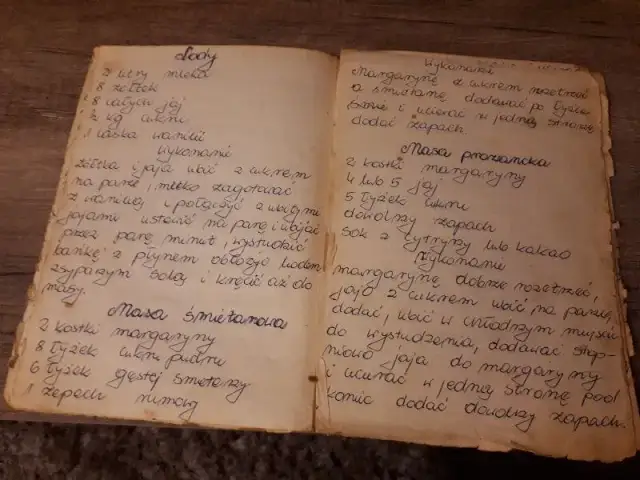 Lody
2 litry mleka
8 żółtek
8 całych jaj
½ kg cukru
1 laska wanilii
Wykonanie
Żółtka i jaja ubić z cukrem
na parze, mleko zagotować
z wanilią i połączyć z ubitymi
jajami ustawić na parę i ubijać
przez parę minut, wystudzić
bańkę z płynem obłożyć lodem
zsypanym solą i kręcić aż do
masy.
Masa śmietanowa
2 kostki margaryny
8 łyżek cukru pudru
6 łyżek gęstej śmietany
1 zapach rumowy
Wykonanie
Margarynę z cukrem rozetrzeć
a śmietanę dodawać po łyżce
i ucierać w jedną stronę,
dodać zapach.
Masa prozancka
2 kostki margaryny
4 lub 5 jaj
5 łyżek cukru
dowolny zapach
sok z cytryny lub kakao
Wykonanie
margarynę dobrze rozetrzeć,
jaja z cukrem ubić na parze,
dodać, ubić w chłodnym miejscu
do wystudzenia, dodawać stop-
niowo jaja do margaryny
i ucierać w jedną stronę pod
koniec dodać dowolny zapach.